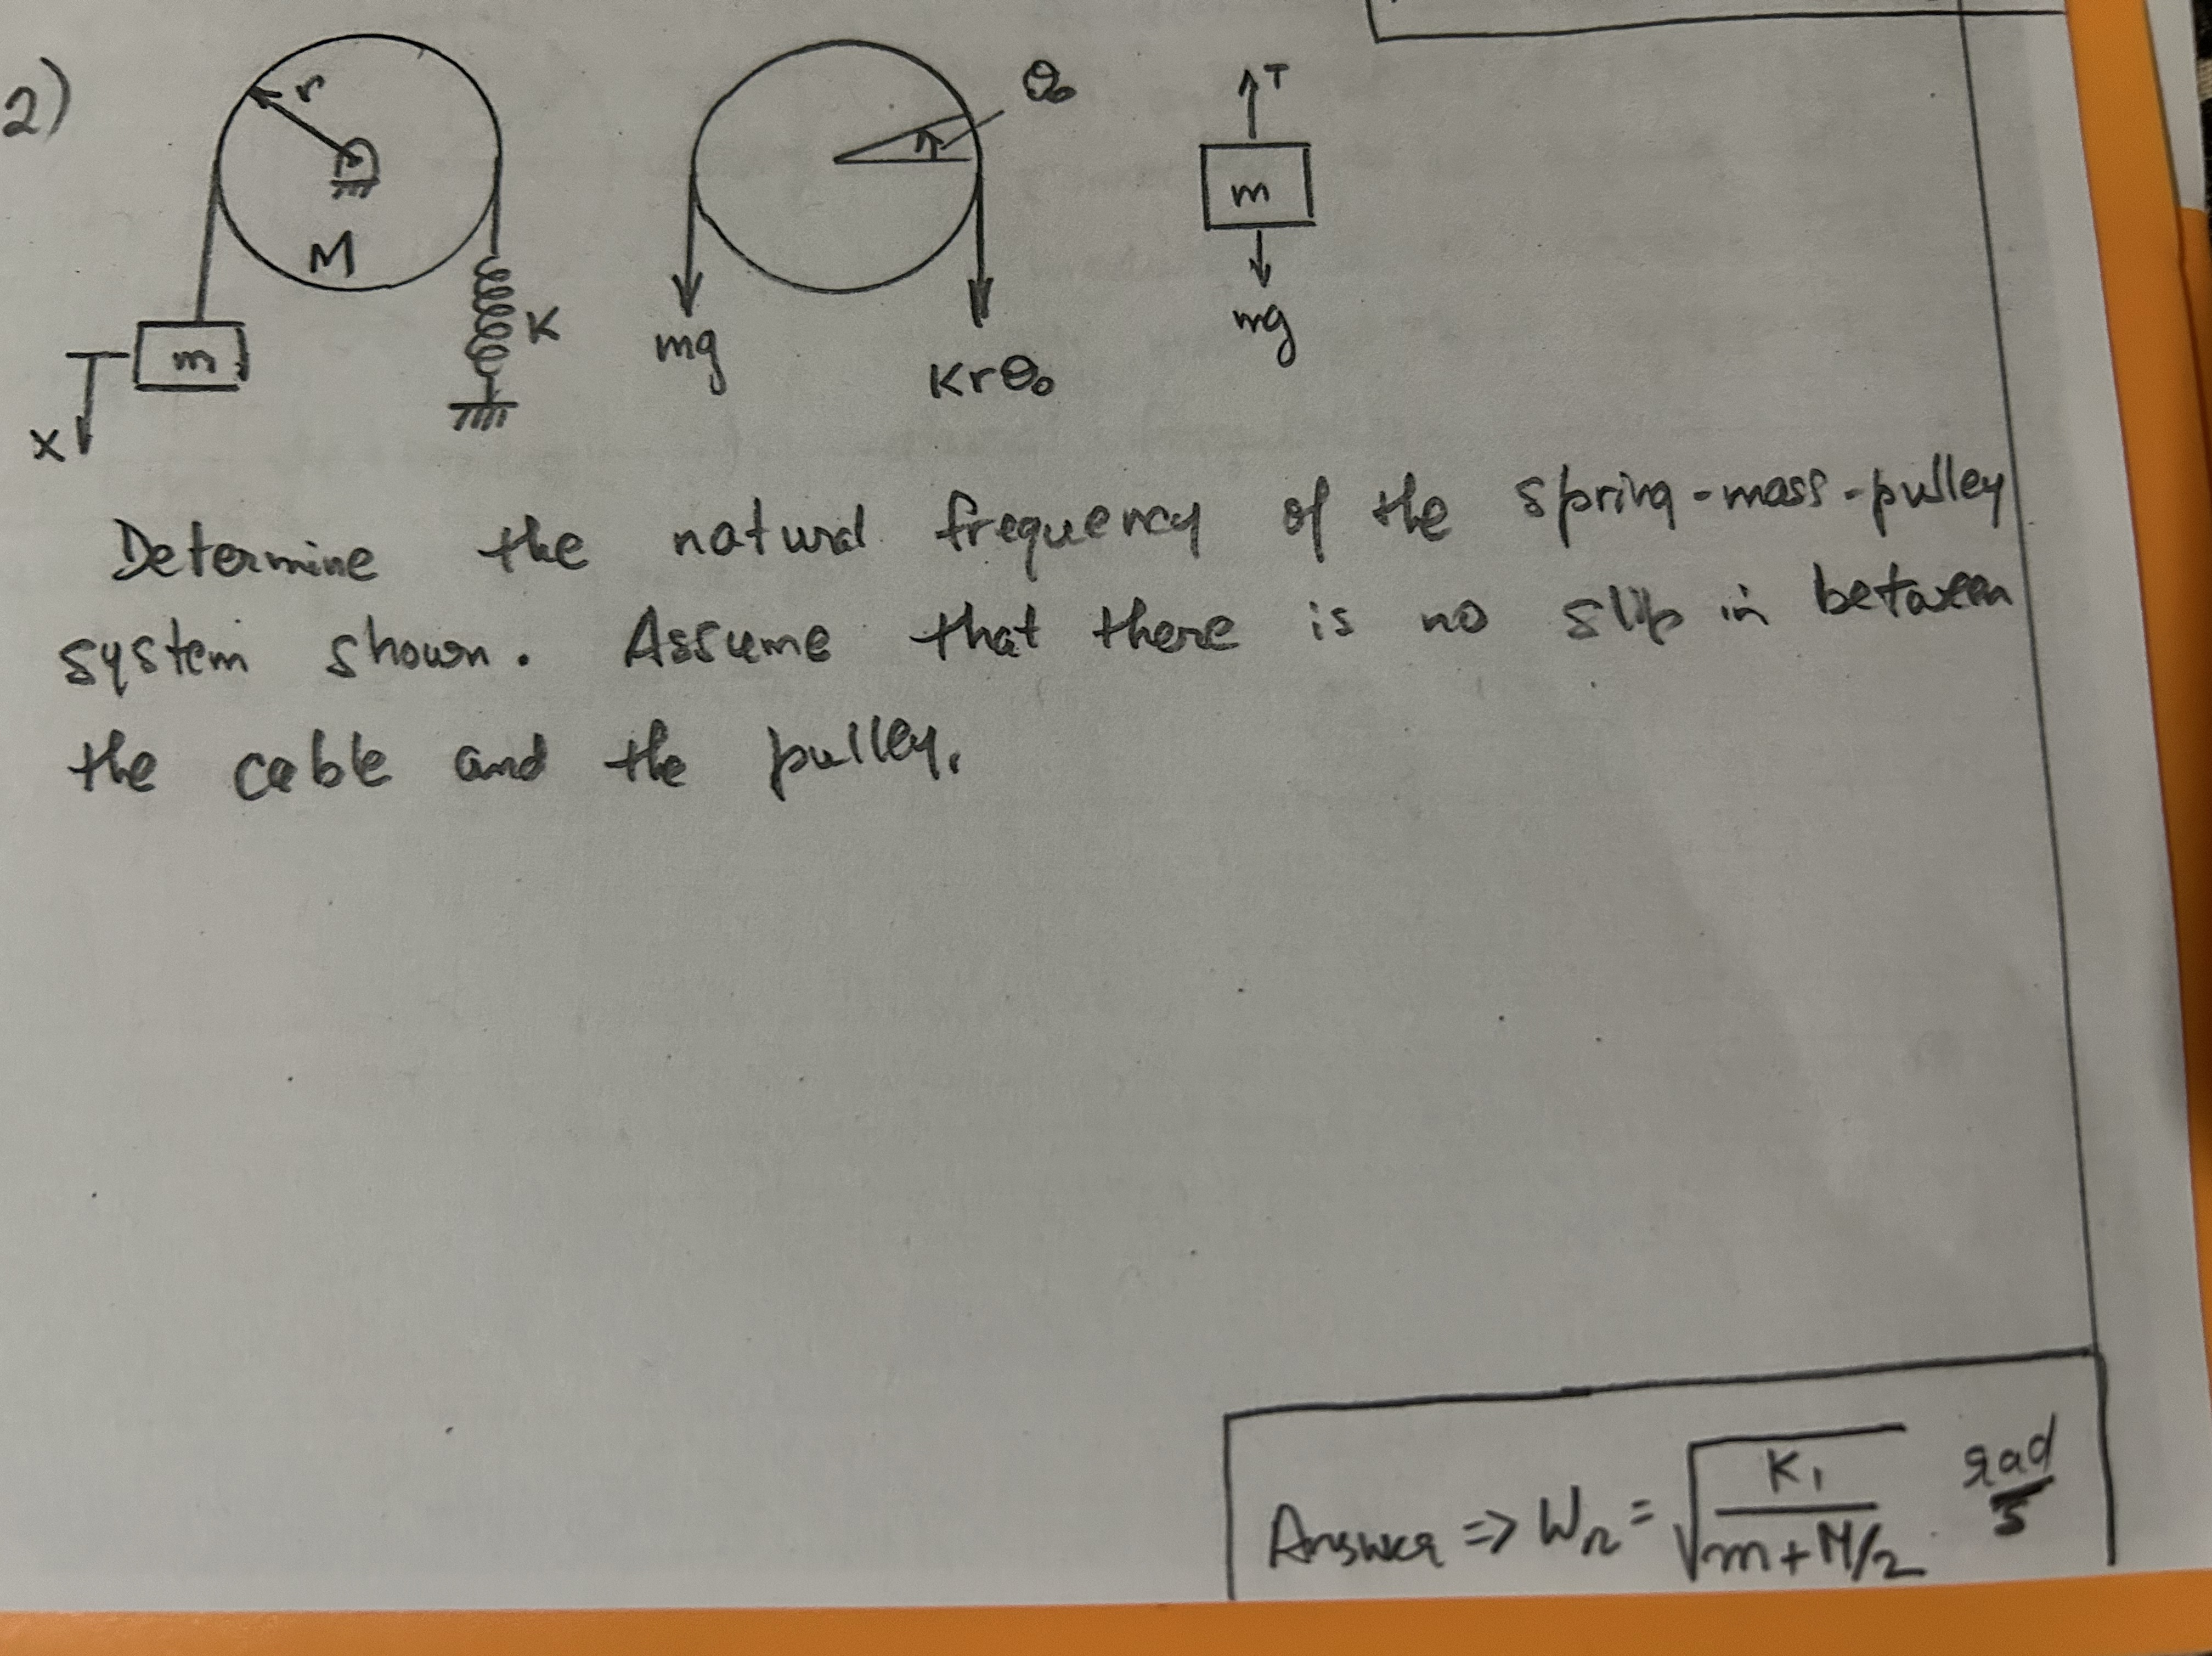 2)
r
M
m
x
K
θ₀
mg
Krθ₀
T
m
mg
Determine the natural frequency of the spring-mass-pulley
system shown. Assume that there is no slip in between
the cable and the pulley.
Answer => Wn = √(K₁/(m+M/2)) rad/s